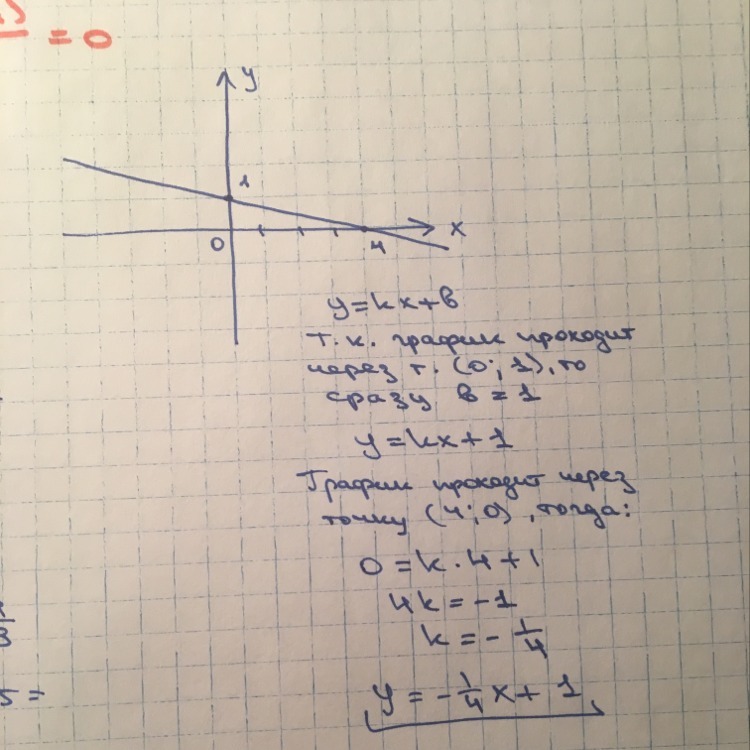 = 0
y
1
0
4
x
y = kx + b
т.к. график проходит
через т. (0; 1), то
сразу b = 1
y = kx + 1
График проходит через
точку (4; 0), тогда:
0 = k · 4 + 1
4k = -1
k = - 1/4
5 =
y = - 1/4 x + 1